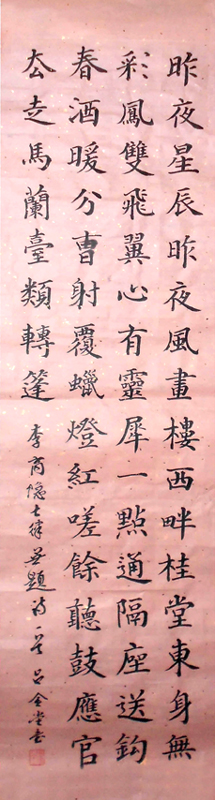 昨夜星辰昨夜風畫樓西畔桂堂東身無
彩鳳雙飛翼心有靈犀一點通隔座送鈎
春酒暖分曺射覆蠟燈紅嗟餘聽鼓應官
厺走馬蘭臺類轉篷 李商隐七律無題詩一首 吕金堂书